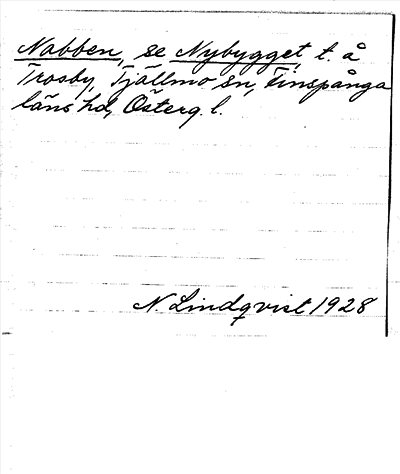 Nabben, se Nybygget t. å
Trosby, Tjällmo sn, Finspånga
läns hd, Österg. l.
N. Lindqvist 1928